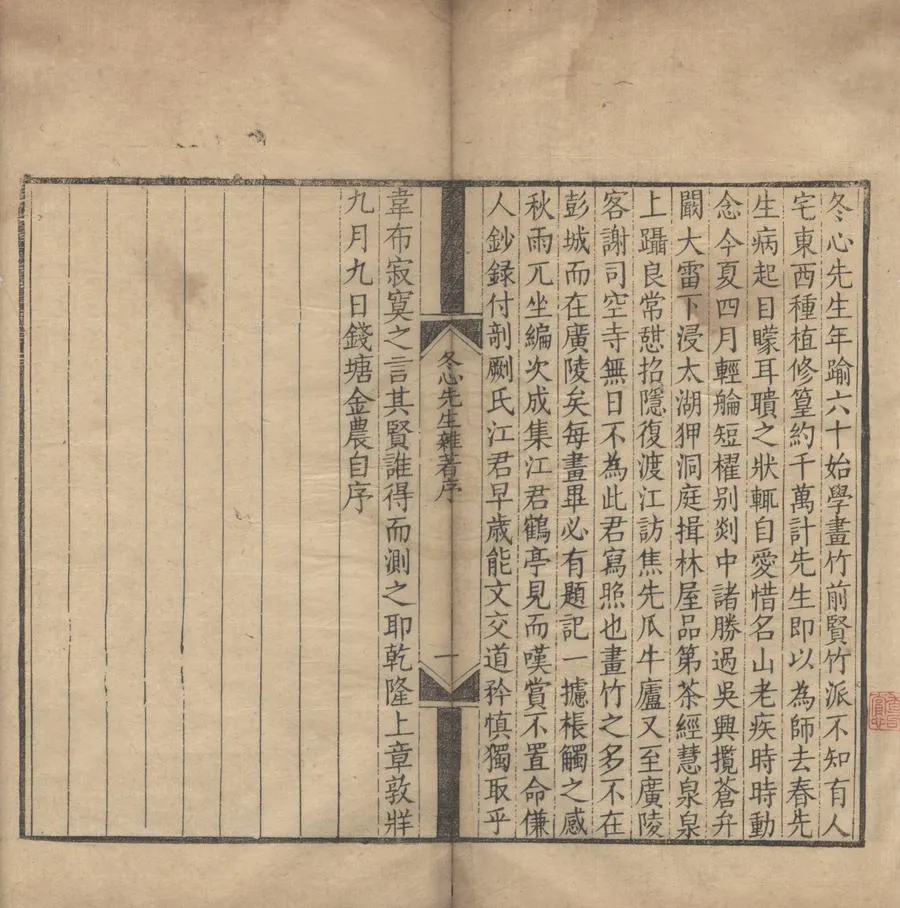 冬心先生年踰六十始學畫竹前賢竹派不知有人
宅東西種植修篁約千萬計先生即以為師去春先
生病起目矇耳聵之狀輒自愛惜名山老疾時時動
念今夏四月輕艑短櫂别剡中諸勝過吳興攬蒼弁
闞大雷下浸太湖狎洞庭揖林屋品第茶經慧泉泉
上躡良常憇招隱復渡江訪焦先瓜牛廬又至廣陵
客謝司空寺無日不為此君寫照也畫竹之多不在
彭城而在廣陵矣每畫畢必有題記一攄棖觸之感
秋雨兀坐編次成集江君鶴亭見而嘆賞不置命傔
人鈔録付剞劂氏江君早歳能文交道矜慎獨取乎
冬心先生雜著序
一
韋布寂寞之言其賢誰得而測之耶乾隆上章敦牂
九月九日錢塘金農自序